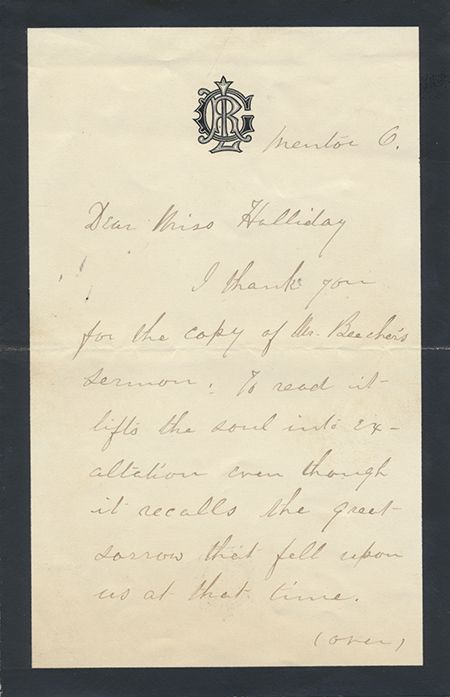 Mentor O.
Dear Miss Halliday
I thank you
for the copy of Mr. Beecher's
sermon. To read it
lifts the soul into ex-
altation even though
it recalls the great
sorrow that fell upon
us at that time.
(over)